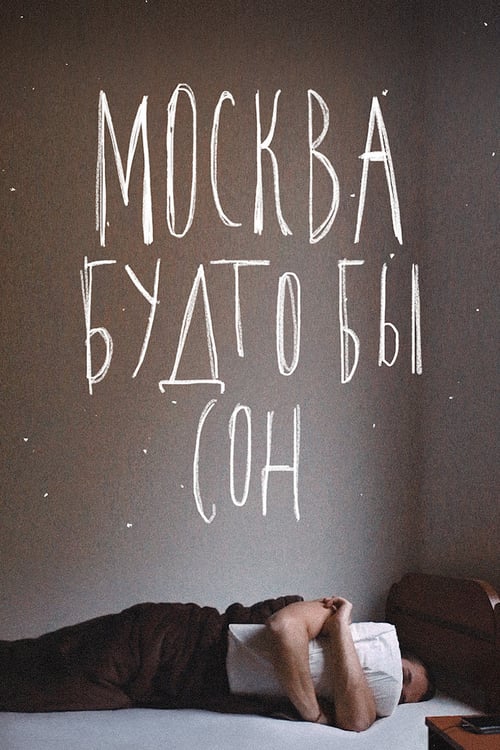 МОСКВА
БУДТО БЫ
СОН